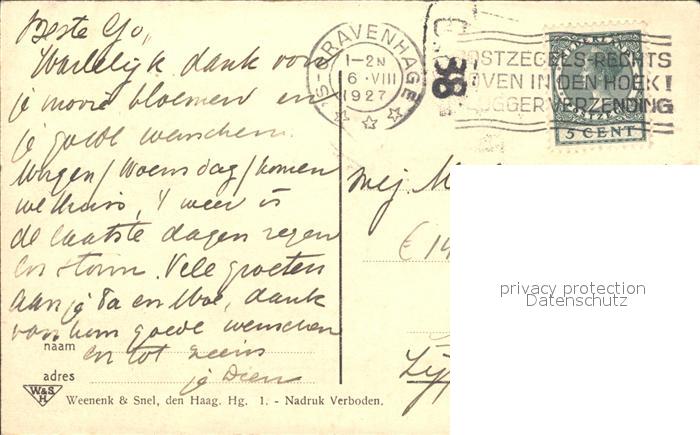 Beste Jo,
Hartelijk dank voor
je mooie bloemen en
je goede wenschen.
Morgen / Woensdag / komen
we thuis, 't weer is
de laatste dagen regen
en storm. Vele groeten
aan je Pa en Moe, dank
van hun goede wenschen
en tot ziens
je Dien
naam
adres
W&S
H
Weenenk & Snel, den Haag. Hg. 1. - Nadruk Verboden.
'S-GRAVENHAGE
1-2N
6 · VIII
1927
POSTZEGELS RECHTS
BOVEN IN DEN HOEK!
VLUGGER VERZENDING
NEDERLAND
POSTZEGEL
5 CENT
Mej
privacy protection
Datenschutz